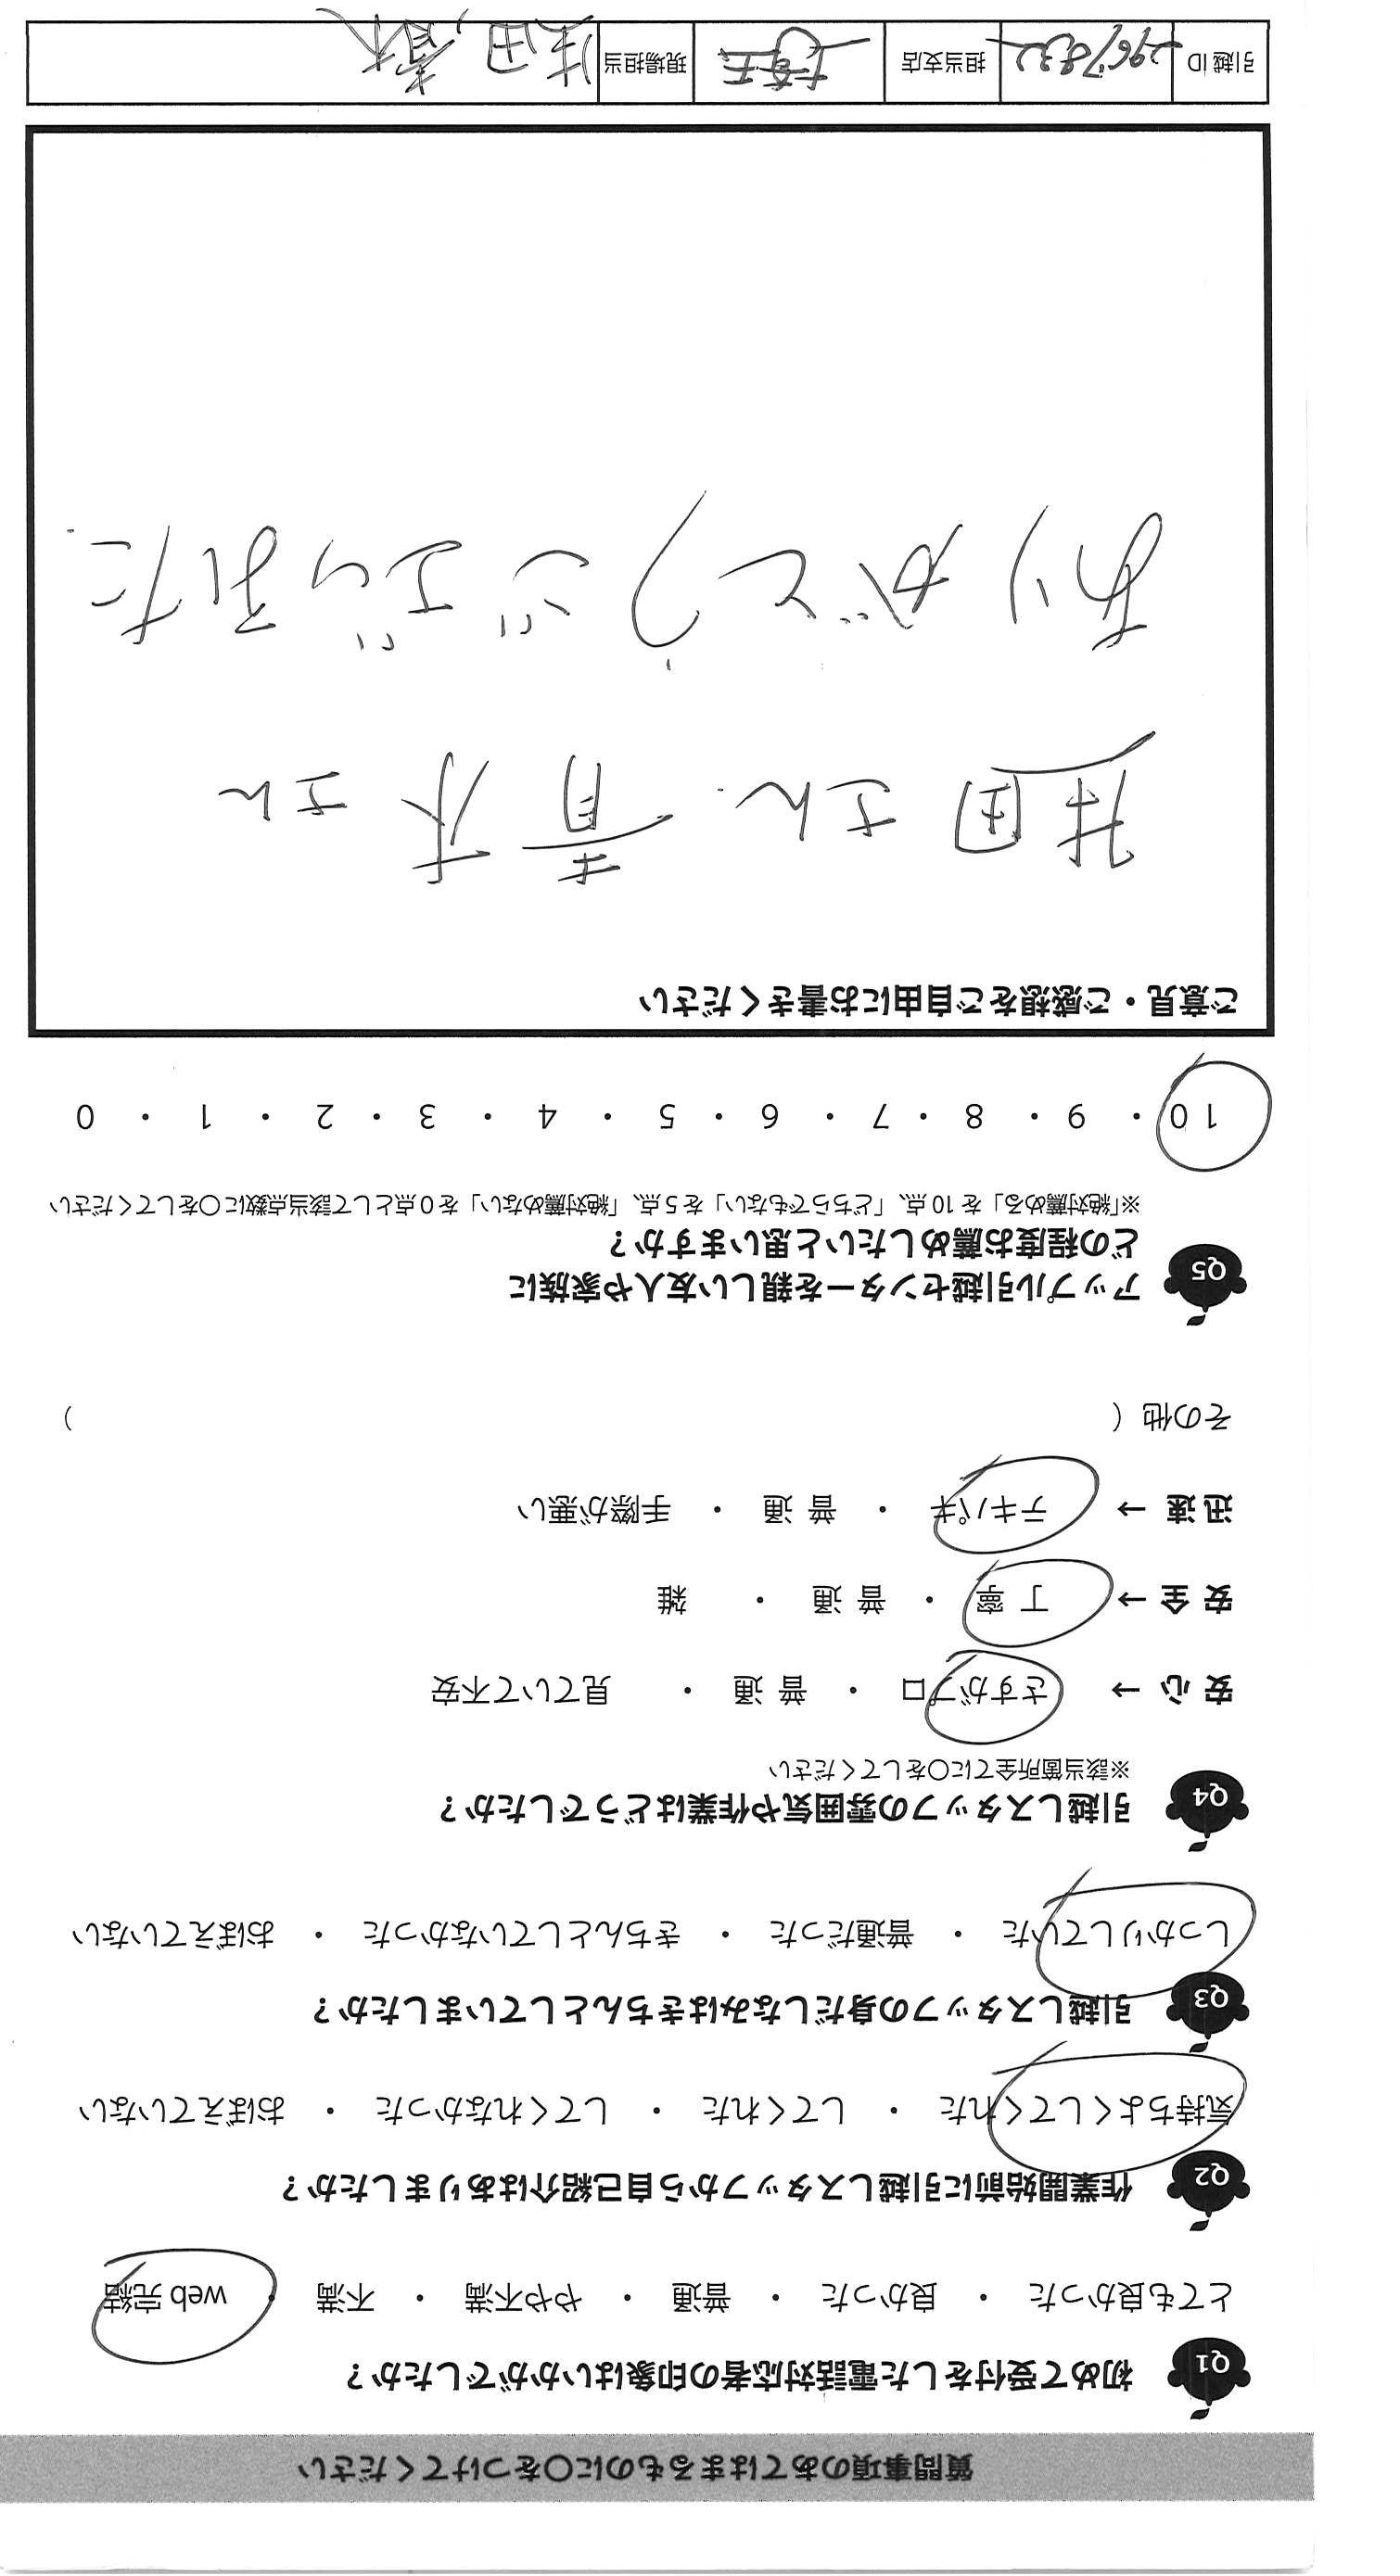 質問事項のあてはまるものに〇をつけてください
Q1 初めて受付をした電話対応者の印象はいかがでしたか？
とても良かった ・ 良かった ・ 普通 ・ やや不満 ・ 不満 ・ web 完結
Q2 作業開始前に引越しスタッフから自己紹介はありましたか？
気持ちよくしてくれた ・ してくれた ・ してくれなかった ・ おぼえていない
Q3 引越しスタッフの身だしなみはきちんとしていましたか？
しっかりしていた ・ 普通だった ・ きちんとしていなかった ・ おぼえていない
Q4 引越しスタッフの雰囲気や作業はどうでしたか？
※該当箇所全てに〇をしてください
安 心 → さすがプロ ・ 普 通 ・ 見ていて不安
安 全 → 丁 寧 ・ 普 通 ・ 雑
迅 速 → テキパキ ・ 普 通 ・ 手際が悪い
その他（ ）
Q5 アップル引越センターを親しい友人や家族に
どの程度お薦めしたいと思いますか？
※「絶対薦める」を 10 点、「どちらでもない」を 5 点、「絶対薦めない」を 0 点として該当点数に〇をしてください
10 ・ 9 ・ 8 ・ 7 ・ 6 ・ 5 ・ 4 ・ 3 ・ 2 ・ 1 ・ 0
ご意見・ご感想をご自由にお書きください
さん. 青木 さん
ありがとうございました.
引越 ID 2967832 担当支店 埼玉 現場担当 田, 青木